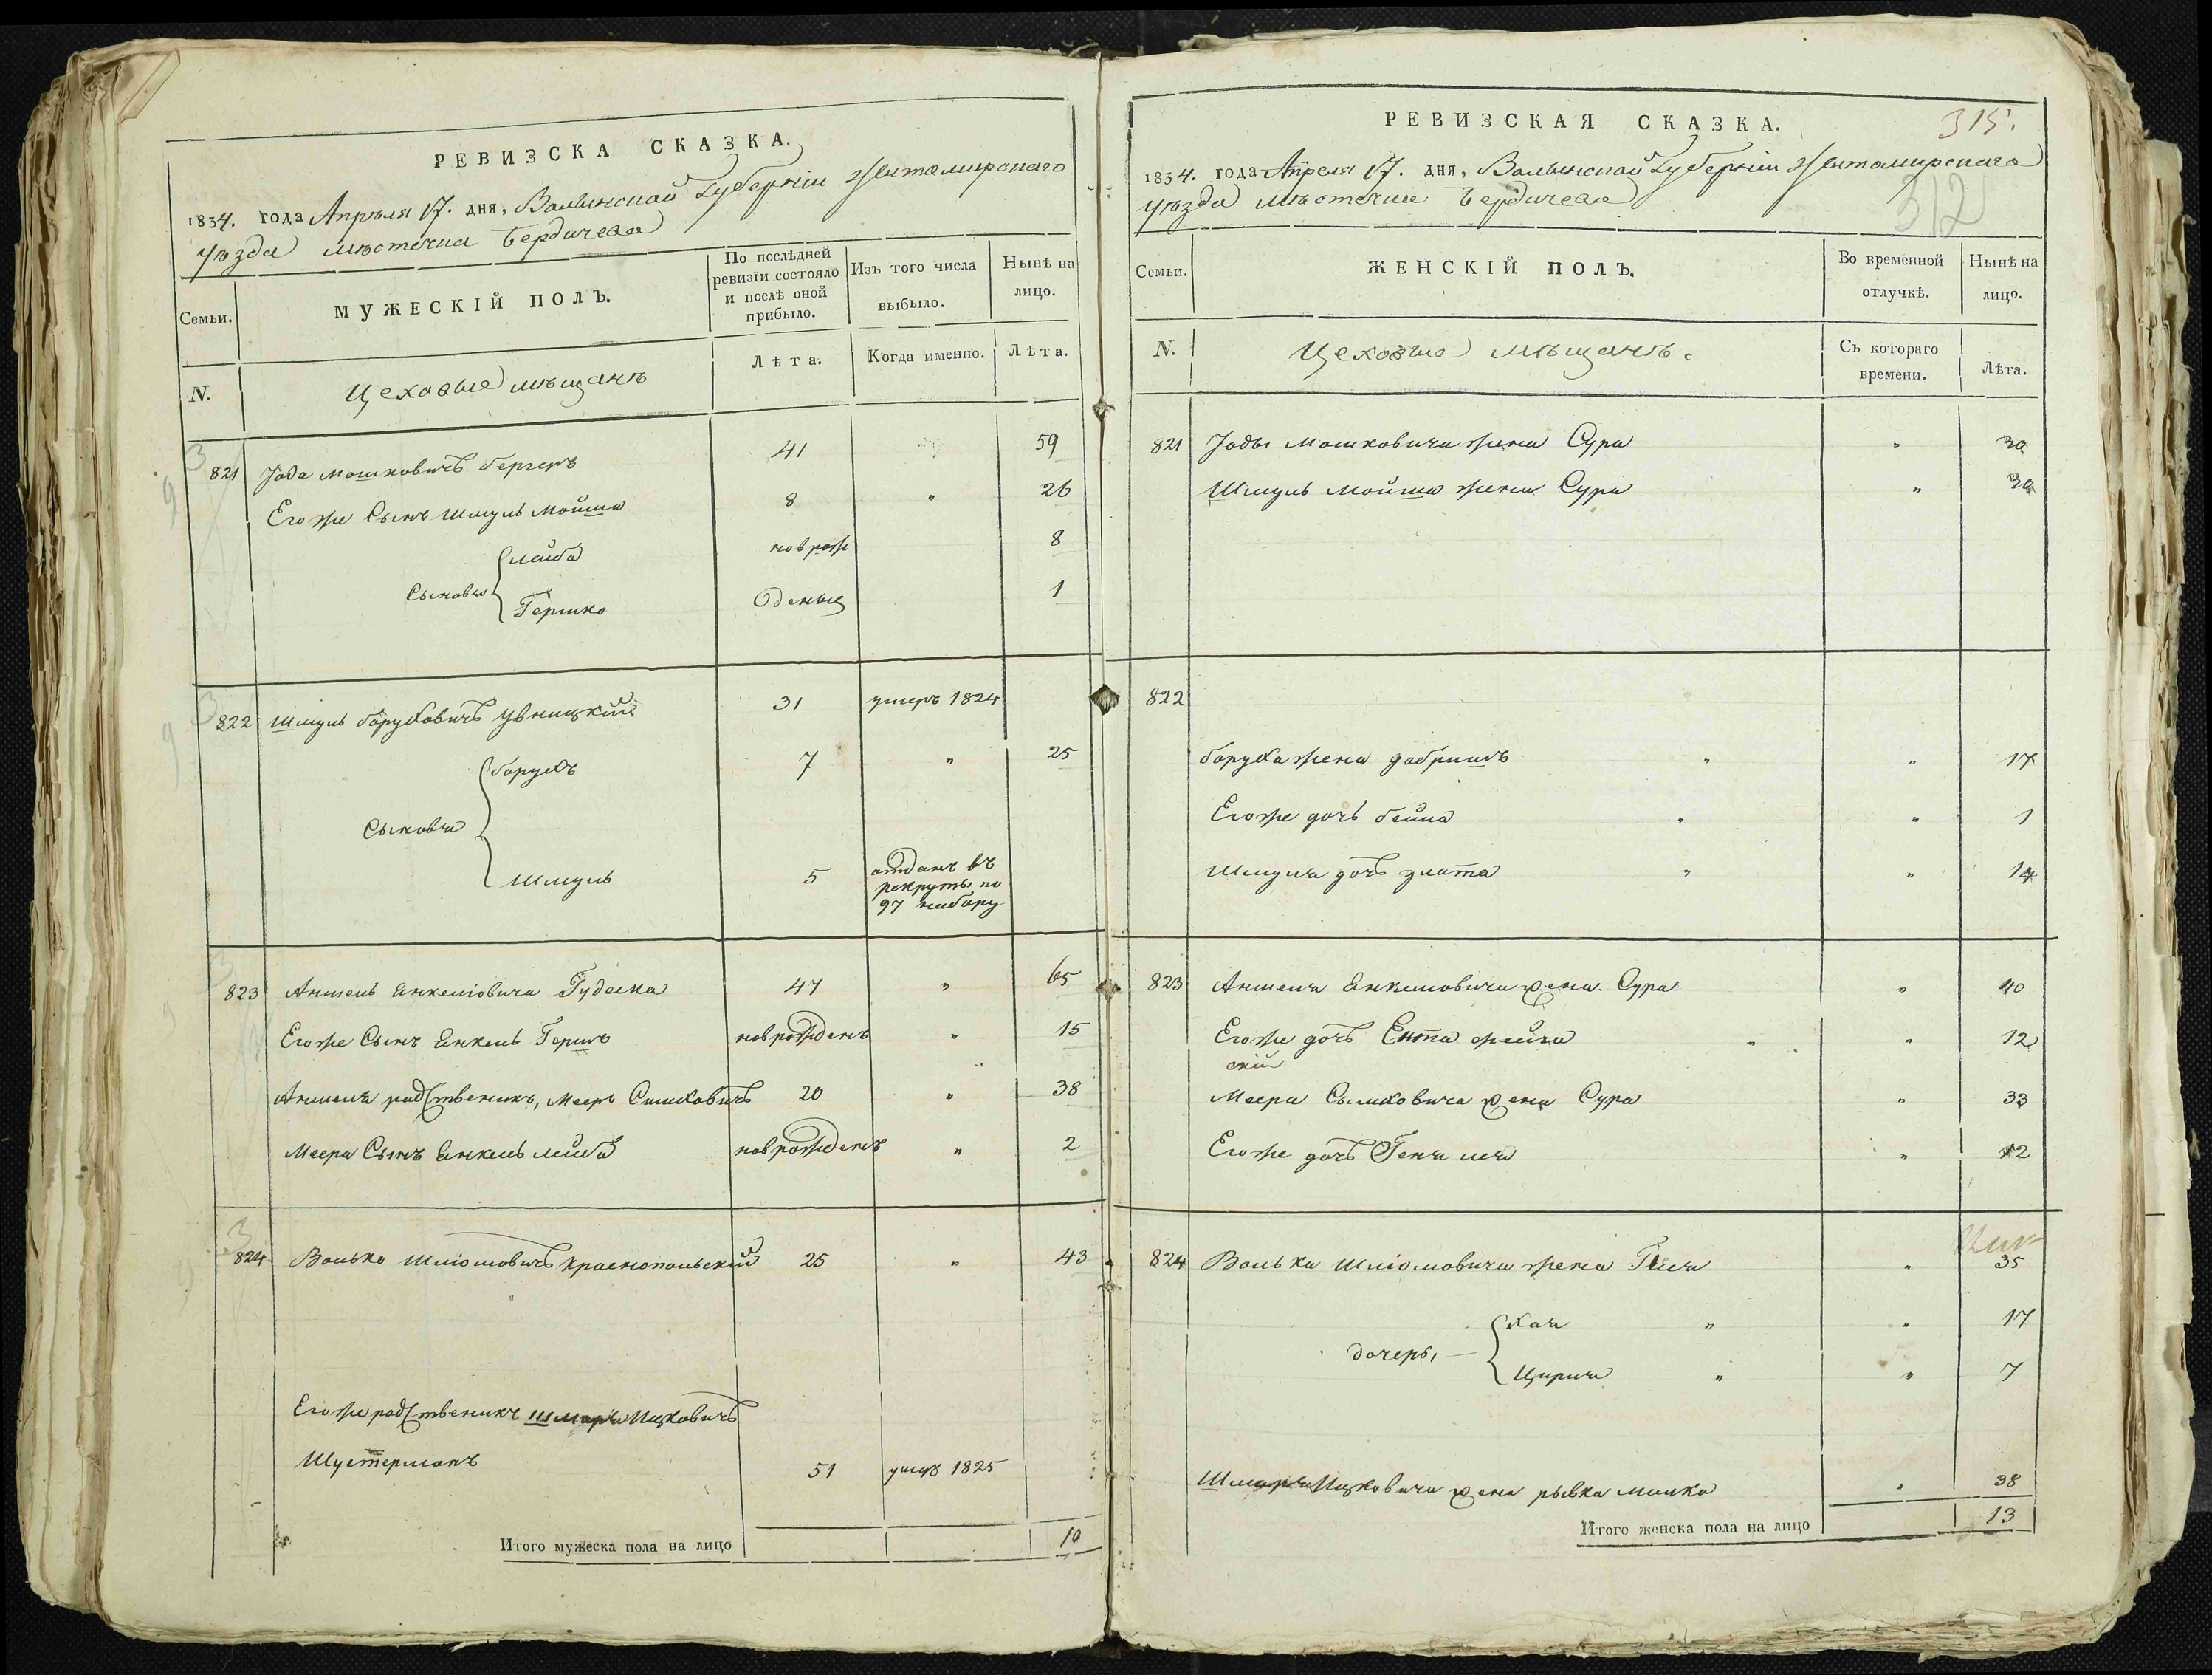 РЕВИЗСКА СКАЗКА.
1834. года Апрѣля 17. дня, Волынской Губерніи Житомирскаго
уѣзда мѣстечка Бердичева
Семьи.
МУЖЕСКІЙ ПОЛЪ.
По послѣдней
ревизіи состояло
и послѣ оной
прибыло.
Изъ того числа
выбыло.
Нынѣ на
лицо.
N.
Цеховые мѣщане
Лѣта.
Когда именно.
Лѣта.
821 Іода Мошковичъ Бергеръ 41 59
Егоже Сынъ Шмуль Мойша 8 " 26
Лейба новрож 8
Сыновья
Гершко Оденыц 1
822 Шмуль Боруховичъ Увницкій 31 умеръ 1824
Борухъ 7 " 25
Сыновья
Шмуль 5 отданъ въ
рекруты по
97 набору
823 Аншель Янкеліовича Гудеска 47 " 65
Егоже Сынъ Янкель Гершъ новрожденъ " 15
Аншеля родственикъ, Мееръ Сишковичъ 20 " 38
Меера Сынъ Янкель Лейба новрожденъ " 2
824 Волько Шліомовичъ Краснопольскій 25 " 43
Егоже родственикъ Ицковичъ
Шустерманъ 51 умеръ 1825
Итого мужеска пола на лицо 10
РЕВИЗСКАЯ СКАЗКА.
315.
1834. года Апреля 17. дня, Волынской Губерніи Житомирскаго
312
уѣзда мѣстечка Бердичева
Семьи.
ЖЕНСКІЙ ПОЛЪ.
Во временной
отлучкѣ.
Нынѣ на
лицо.
N.
Цеховые мѣщанѣ.
Съ котораго
времени.
Лѣта.
821 Іоды Мошковича жена Сура "
Шмуль Мойша жена Сура "
822
Боруха жена Добришъ " " 17
Егоже дочь Бейла " " 1
Шмуля дочь Злата " " 14
823 Аншеля Янкеліовича жена Сура " 40
Егоже дочь Ента Фейга " " 12
Меера жена Сура " 33
Егоже дочь Геня Лея " 12
824 Волька Шліомовича жена " 35
Хая " " 17
дочеры
Цирля " " 7
Ицковича жена Рывка Малка " 38
Итого женска пола на лицо 13